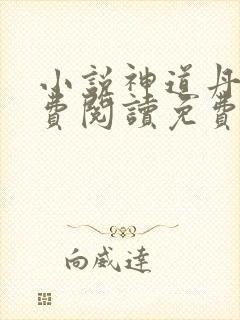 小說神道丹
費閱讀免費
向威達